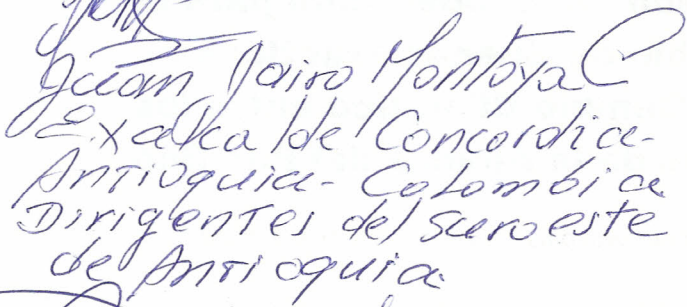 Juan Jairo Montoya C
Exalcalde Concordia-
Antioquia- Colombia
Dirigentes del Suroeste
de Antioquia